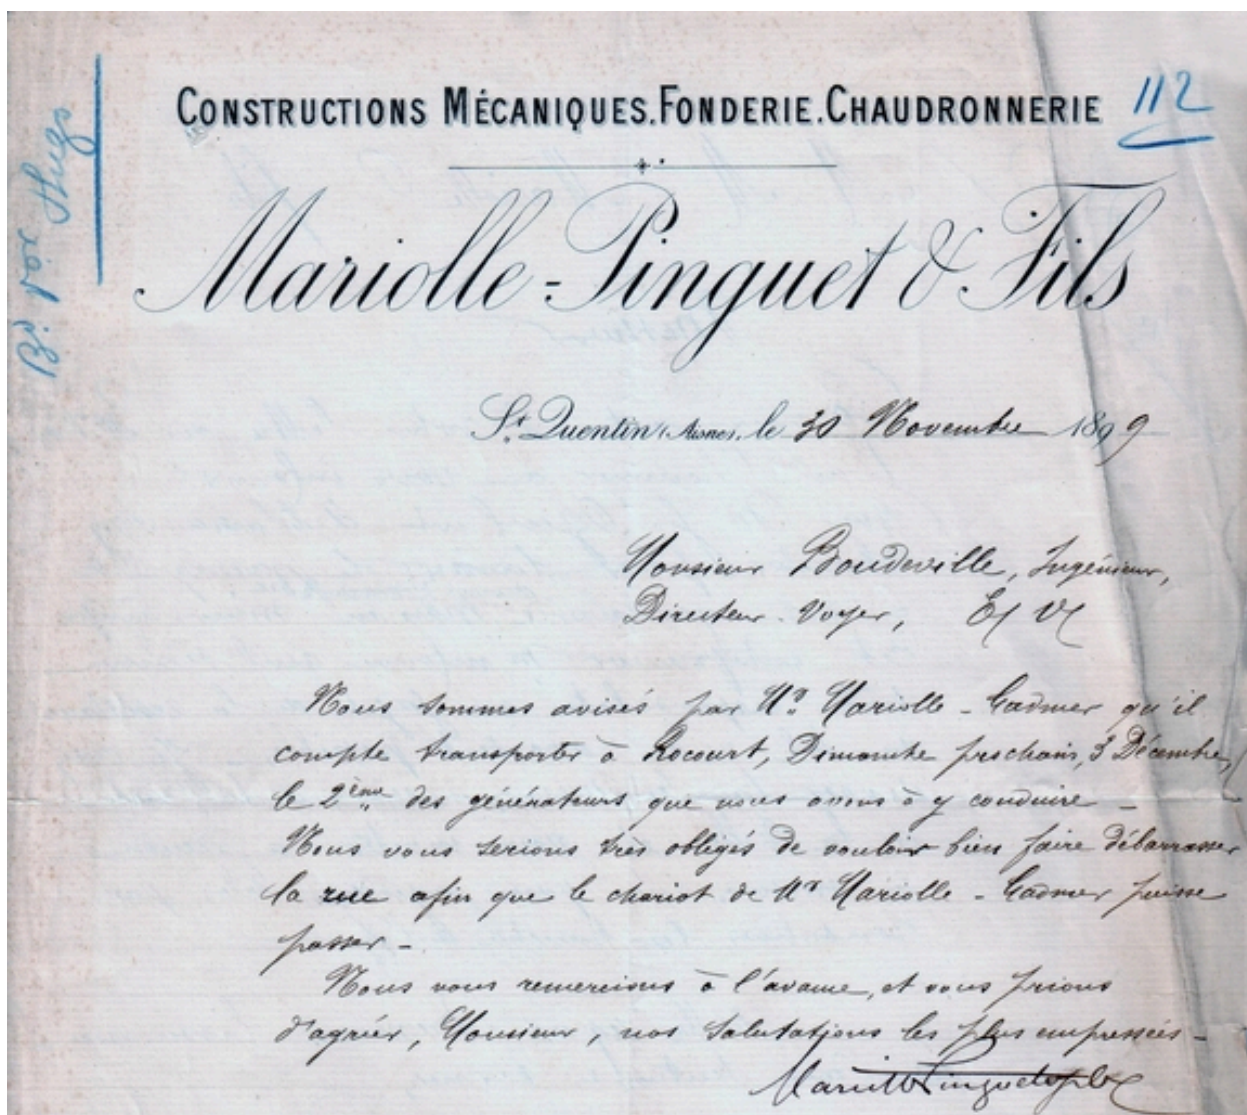 112
CONSTRUCTIONS MÉCANIQUES. FONDERIE. CHAUDRONNERIE
Mariolle-Pinguet & Fils
St. Quentin (Aisne), le 30 Novembre 1899
Monsieur Boudeville, Ingénieur,
Directeur-Voyer, E/ V/
Nous sommes avisés par Mr. Mariolle-Cadmer qu'il
compte transporter à Rocourt, Dimanche prochain, 3 Décembre,
le 2ème des générateurs que nous avons à y conduire -
Nous vous serions très obligés de vouloir bien faire débarrasser
la rue afin que le chariot de Mr Mariolle-Cadmer puisse
passer -
Nous vous remercions à l'avance, et vous prions
d'agréer, Monsieur, nos salutations les plus empressées -
Mariolle Pinguet & fils